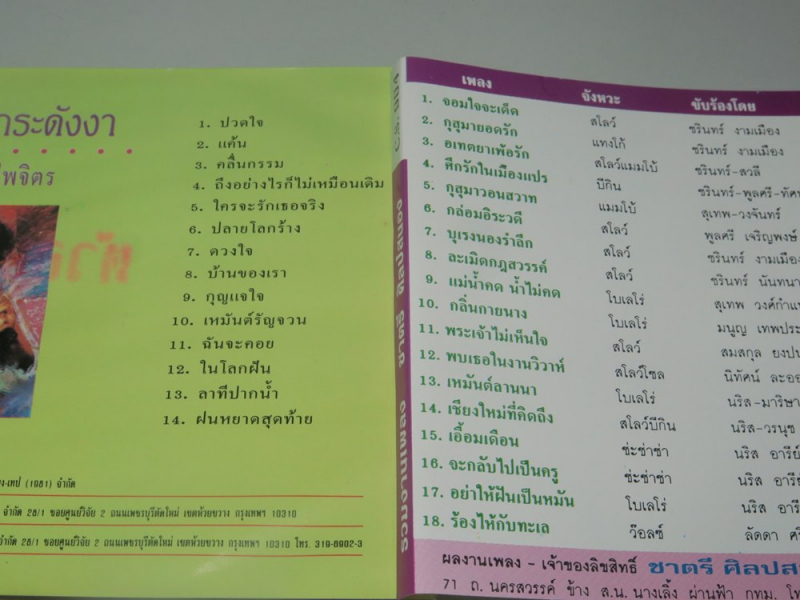 าระดังงา
ไพจิตร
1. ปวดใจ
2. แค้น
3. คลื่นกรรม
4. ถึงอย่างไรก็ไม่เหมือนเดิม
5. ใครจะรักเธอจริง
6. ปลายโลกร้าง
7. ดวงใจ
8. บ้านของเรา
9. กุญแจใจ
10. เหมันต์รัญจวน
11. ฉันจะคอย
12. ในโลกฝัน
13. ลาทีปากน้ำ
14. ฝนหยาดสุดท้าย
(1981) จำกัด
จำกัด 28/1 ซอยศูนย์วิจัย 2 ถนนเพชรบุรีตัดใหม่ เขตห้วยขวาง กรุงเทพฯ 10310
จำกัด 28/1 ซอยศูนย์วิจัย 2 ถนนเพชรบุรีตัดใหม่ เขตห้วยขวาง กรุงเทพฯ 10310 โทร. 319-6902-3
เพลง จังหวะ ขับร้องโดย
1. จอมใจจะเด็ด สโลว์ ชรินทร์ งามเมือง
2. กุสุมายอดรัก แทงโก้ ชรินทร์ งามเมือง
3. อเทตยาเพ้อรัก สโลว์แมมโบ้ ชรินทร์-สวลี
4. ศึกรักในเมืองแปร บีกิน ชรินทร์-พูลศรี-ทัศ
5. กุสุมาวอนสวาท แมมโบ้ สุเทพ-วงจันทร์
6. กล่อมอิระวดี สโลว์ พูลศรี เจริญพงษ์
7. บุเรงนองรำลึก สโลว์ ชรินทร์ งามเมือง
8. ละเมิดกฎสวรรค์ สโลว์ ชรินทร์ นันทนา
9. แม่น้ำคด น้ำไม่คด โบเลโร่ สุเทพ วงศ์กำแห
10. กลิ่นกายนาง โบเลโร่ มนูญ เทพประ
11. พระเจ้าไม่เห็นใจ สโลว์ สมสกุล ยงปร
12. พบเธอในงานวิวาห์ สโลว์โซล นิทัศน์ ละออ
13. เหมันต์ลานนา โบเลโร่ นริส-มาริษา
14. เชียงใหม่ที่คิดถึง สโลว์บีกิน นริส-วรนุช
15. เอื้อมเดือน ช่ะช่าช่า นริส อารีย์
16. จะกลับไปเป็นครู ช่ะช่าช่า นริส อารีย์
17. อย่าให้ฝันเป็นหมัน โบเลโร่ นริส อารี
18. ร้องไห้กับทะเล ว๊อลซ์ ลัดดา ศรี
ผลงานเพลง - เจ้าของลิขสิทธิ์ ชาตรี ศิลปส
71 ถ. นครสวรรค์ ข้าง ส.น. นางเลิ้ง ผ่านฟ้า กทม. โท